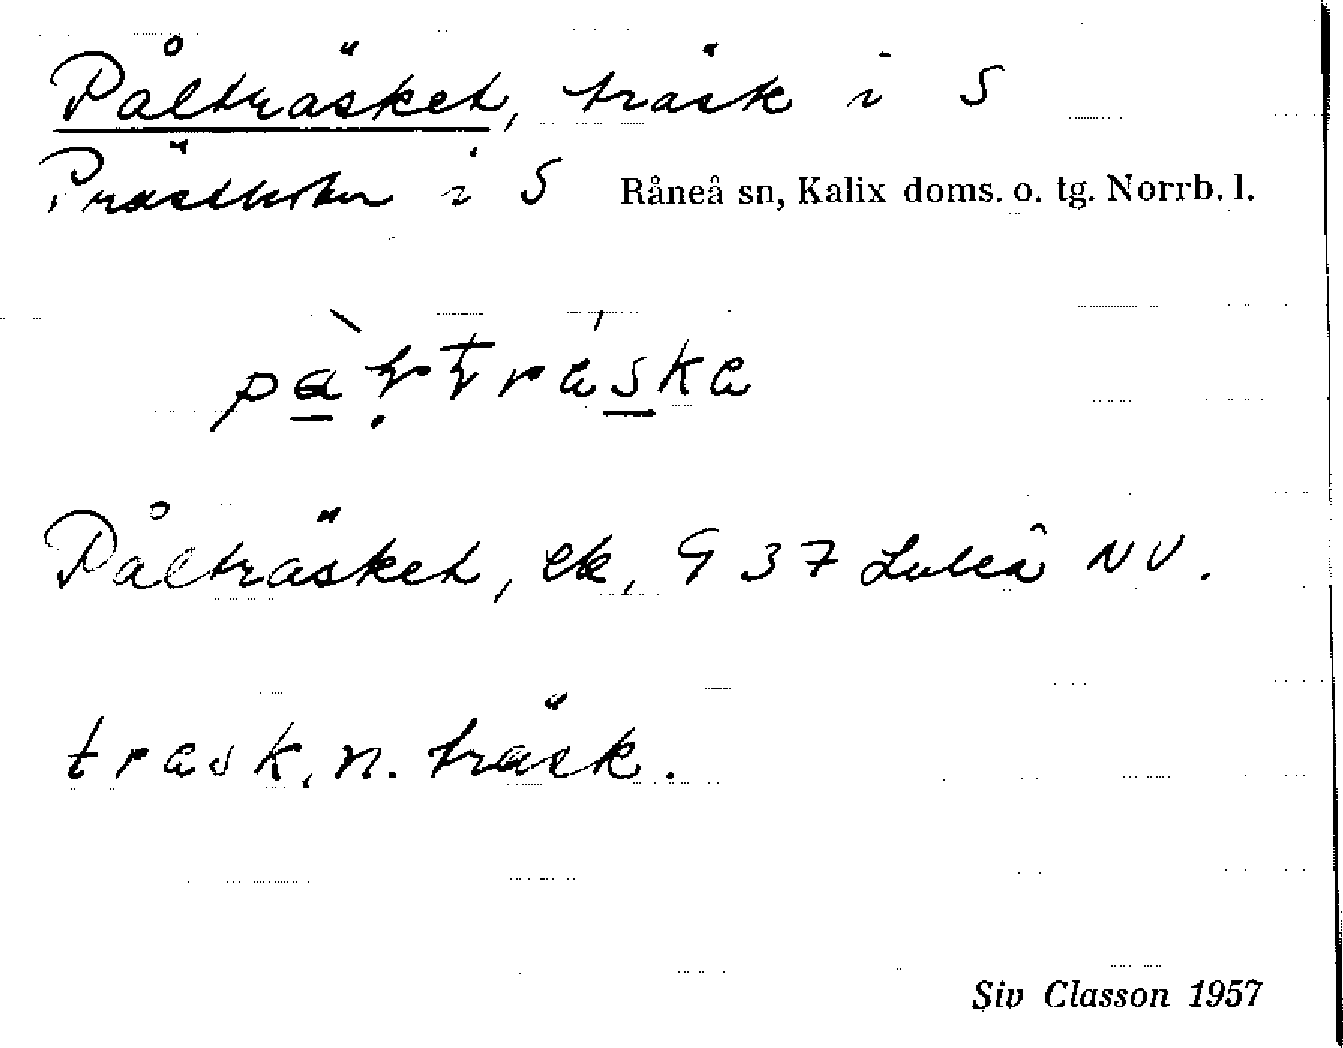 Pålträsket, träsk i S
Prästholm i S Råneå sn, Kalix doms. o. tg. Norrb. l.
Pålträsket, ek, 9 37 Luleå NV.
trask, n. träsk.
Siv Classon 1957